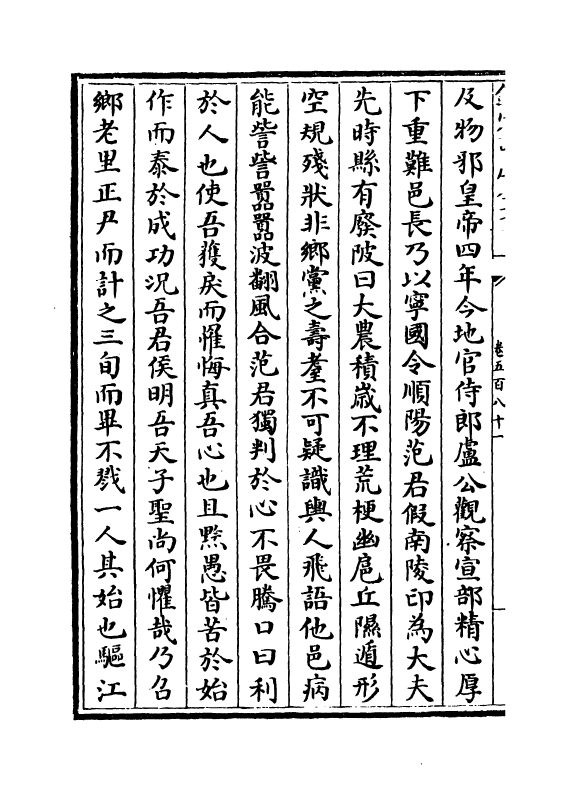 及物邪皇帝四年今地官侍郎盧公觀察宣部精心厚
下重難邑長乃以寧國令順陽范君假南陵印為大夫
先時縣有廢陂曰大農積歲不理荒梗幽扈丘隰遁形
空規殘狀非鄉黨之壽耋不可疑識輿人飛語他邑病
能訾訾嚚嚚波翻風合范君獨判於心不畏騰口曰利
於人也使吾獲戾而惟悔真吾心也且黙愚皆苦於始
作而泰於成功况吾君侯明吾天子聖尚何懼哉乃召
鄉老里正尹而計之三旬而畢不戮一人其始也驅江
卷五百八十一